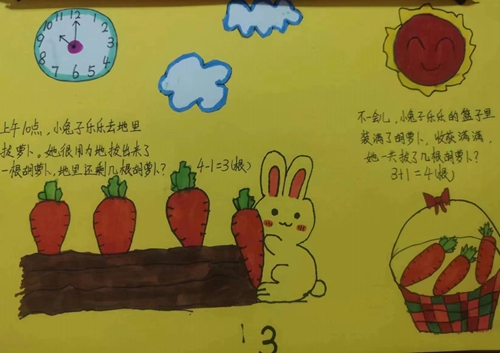 12
11
1
10
2
9
3
8
4
7
5
6
上午10点，小兔子乐乐去地里
拔萝卜。她很用力地拔出来了
一根胡萝卜，地里还剩几根胡萝卜？
4-1=3(根)
不一会儿，小兔子乐乐的篮子里
装满了胡萝卜。收获满满，
她一共拔了几根胡萝卜？
3+1=4(根)
3